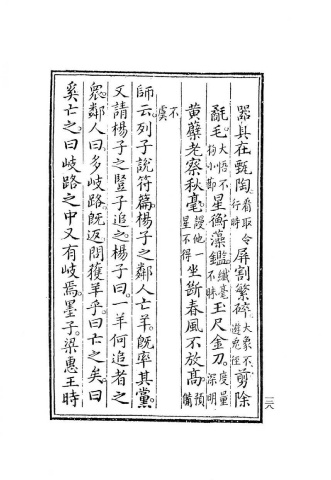 器具在甄陶。看取令行時屏割繁碎。大象不遊兔徑剪除
翫毛。大悟不拘小節星衡藻鑑。纖毫不昧玉尺金刀。度量深明
黃蘗老察秋毫。謾他一星不得坐斷春風不放高。預備
不虞
師云。列子說符篇。楊子之鄰人亡羊。既率其黨。
又請楊子之豎子追之。楊子曰。一羊何追者之
眾。鄰人曰。多岐路。既返。問獲羊乎。曰亡之矣。曰
奚亡之。曰岐路之中又有岐焉。墨子。梁惠王時
一三八